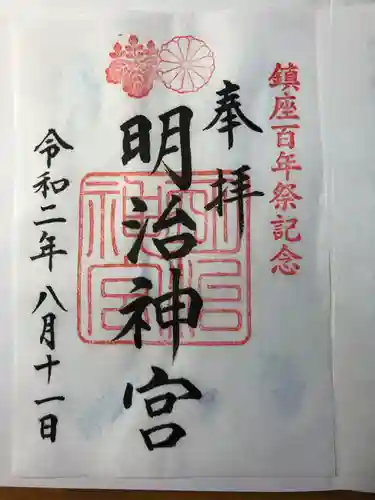 鎮座百年祭記念
奉拝
明治神宮
令和二年八月十一日
明治神宮